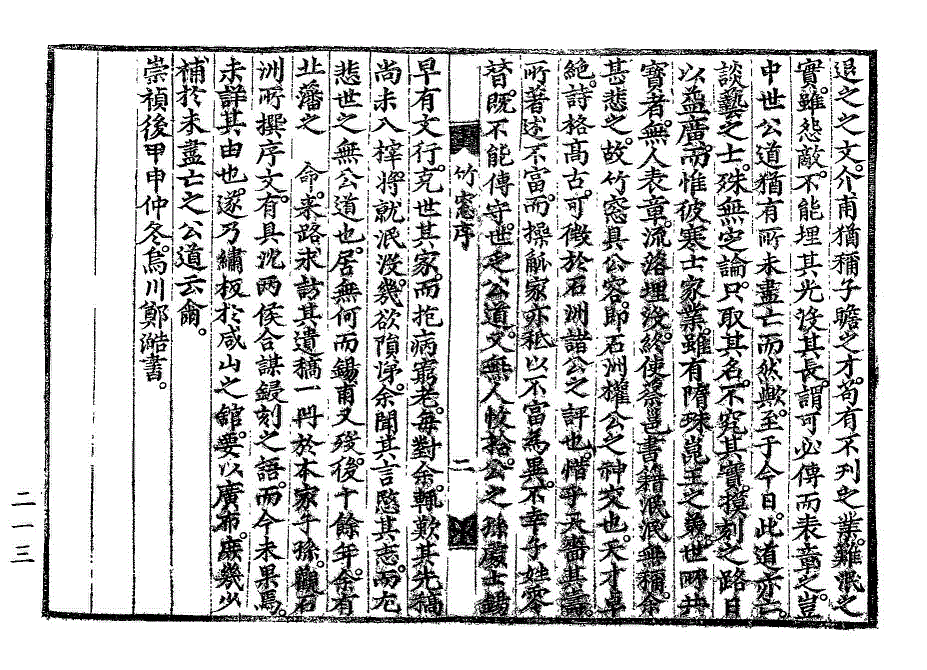 退之之文。介甫猶稱子瞻之才。苟有不刊之業。難泯之
實。雖怨敵。不能埋其光沒其長。謂可必傳而表章之。豈
中世公道猶有所未盡亡而然歟。至于今日。此道亦亡。
談藝之士。殊無定論。只取其名。不究其實。摸刻之路日
以益廣。而惟彼寒士家業。雖有隋珠崑玉之幾。世所共
寶者。無人表章。流落埋沒。終使蔡邕書籍泯泯無稱。余
甚悲之。故竹窓具公容。卽石洲權公之神交也。天才卓
絶。詩格高古。可徵於石洲諸公之評也。惜乎天嗇其壽
所著述不富。而操觚家亦秪以不富爲異。不幸子姓零
替。旣不能傳守。世乏公道。又無人收拾。公之孫處士錫
竹窓序
二
早有文行。克世其家。而抱病窮老。每對余。輒歎其先稿
尙未入榟。將就泯沒。幾欲隕涕。余聞其言愍其志。而尤
悲世之無公道也。居無何而錫甫又歿。後十餘年。余有
北藩之 命。來路求訪其遺稿一冊於本家子孫。觀石
洲所撰序文。有具沈兩候合謀鋟刻之語。而今未果焉。
未詳其由也。遂乃繡板於咸山之館。要以廣布。庶幾少
補於未盡亡之公道云爾。
崇禎後甲申仲冬。烏川鄭澔書。
二一三